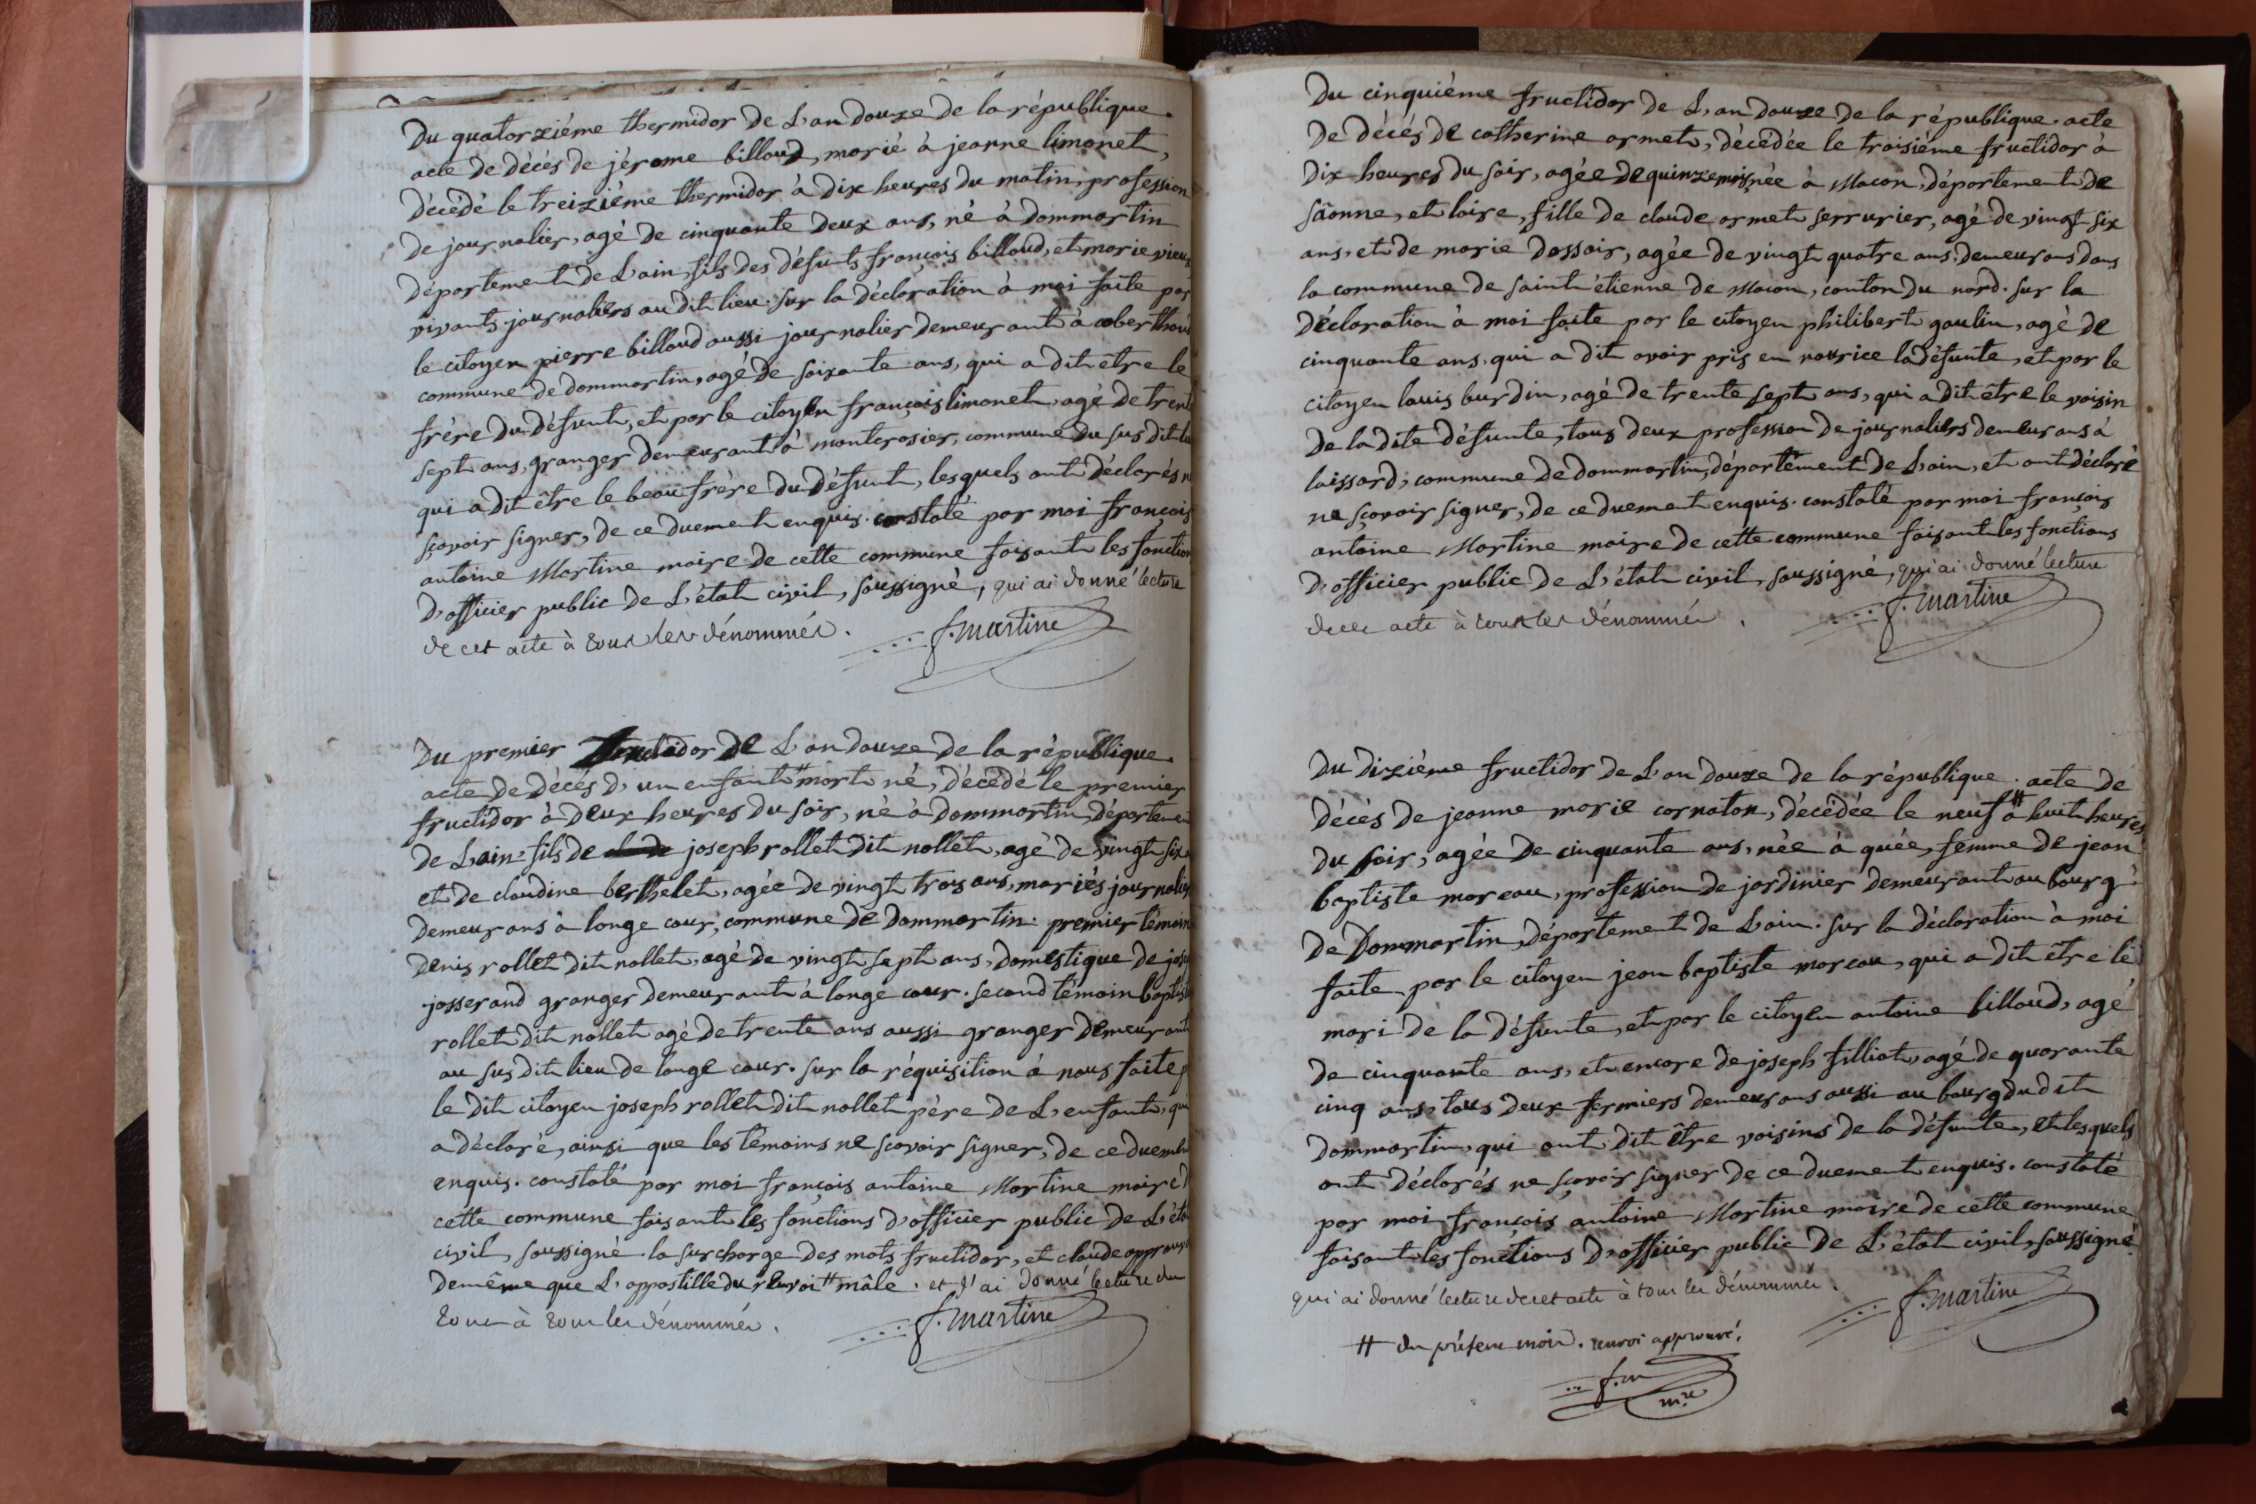 Du quatorzième thermidor de L'an douze de la république.
acte de décès de jérome billoud, marié à jeanne limonet,
décédé le treizième thermidor à dix heures du matin, profession
de journalier, agé de cinquante deux ans, né à dommartin
département de L'ain, fils des défunts françois billoud, et marie vieux
vivants journaliers au dit lieu. sur la déclaration à moi faite par
le citoyen pierre billoud aussi journalier demeurant à
commune de dommartin, agé de soixante ans, qui a dit etre le
frère du défunt, et par le citoyen françois limonet, agé de trente
sept ans, granger demeurant à montcrosier, commune du sus dit lieu
qui a dit être le beau frère du défunt, lesquels ont déclarés ne
sçavoir signer, de ce duement enquis. constaté par moi françois
antoine Martine maire de cette commune faisant les fonctions
d'officier public de L'état civil, soussigné, qui ai donné lecture
de cet acte à tous les dénommés.
f. martine
Du premier fructidor de L'an douze de la république.
acte de décès d'un enfant # mort né, décédé le premier
fructidor à deux heures du soir, né à dommartin, département
de L'ain. fils de joseph rollet dit nollet, agé de vingt six
et de claudine berthelet, agée de vingt trois ans, mariés journaliers
demeurans à longe cour, commune de dommartin. premier témoin
denis rollet dit nollet, agé de vingt sept ans, domestique de
josserand granger demeurant à longe cour. second témoin baptiste
rollet dit nollet agé de trente ans aussi granger demeurant
au sus dit lieu de longe cour. sur la réquisition à nous faite p
le dit citoyen joseph rollet dit nollet père de L'enfant, qui
a déclaré, ainsi que les témoins ne sçavoir signer, de ce duement
enquis. constaté par moi françois antoine Martine maire d
cette commune faisant les fonctions d'officier public de L'état
civil, soussigné. la surcharge des mots fructidor, et claude approuvé
demême que L'appostille du renvoi # mâle. et j'ai donné lecture du
tout à tous les dénommés.
f. martine
Du cinquième fructidor de L'an douze de la république. acte
de décés de catherine ormet, décédée le troisième fructidor à
dix heures du soir, agée de quinze mois, née à Macon, département de
saonne, et loire, fille de claude ormet serrurier, agé de vingt six
ans, et de marie dossoir, agée de vingt quatre ans, demeurans dans
la commune de saint étienne de Macon, canton du nord. sur la
déclaration à moi faite par le citoyen philibert gaulin, agé de
cinquante ans, qui a dit avoir pris en nourice la défunte, et par le
citoyen louis burdin, agé de trente sept ans, qui a dit être le voisin
de la dite défunte, tous deux profession de journaliers demeurans à
laissard, commune de dommartin, département de L'ain, et ont déclaré
ne sçavoir signer, de ce duement enquis. constaté par moi françois
antoine Martine maire de cette commune faisant les fonctions
d'officier public de L'état civil, soussigné, qui ai donné lecture
de cet acte à tous les dénommés.
f. martine
Du dixième fructidor de L'an douze de la république. acte de
décès de jeanne marie cornaton, décédée le neuf # à huit heures
du soir, agée de cinquante ans, née à quée, femme de jean
baptiste moreau, profession de jardinier demeurant au bourg
de Dommartin, département de L'ain. sur la déclaration à moi
faite par le citoyen jean baptiste moreau, qui a dit être le
mari de la défunte, et par le citoyen antoine billoud, agé
de cinquante ans, et encore de joseph filliat, agé de quarante
cinq ans, tous deux fermiers demeurans aussi au bourg du dit
dommartin, qui ont dit être voisins de la défunte, et lesquels
ont déclarés ne sçavoir signer de ce duement enquis. constaté
par moi françois antoine Martine maire de cette commune
faisant les fonctions d'officier public de L'état civil, soussigné.
qui ai donné lecture de cet acte à tous les dénommés.
f. martine
# du présent mois. renvoi approuvé.
f. m
m.re